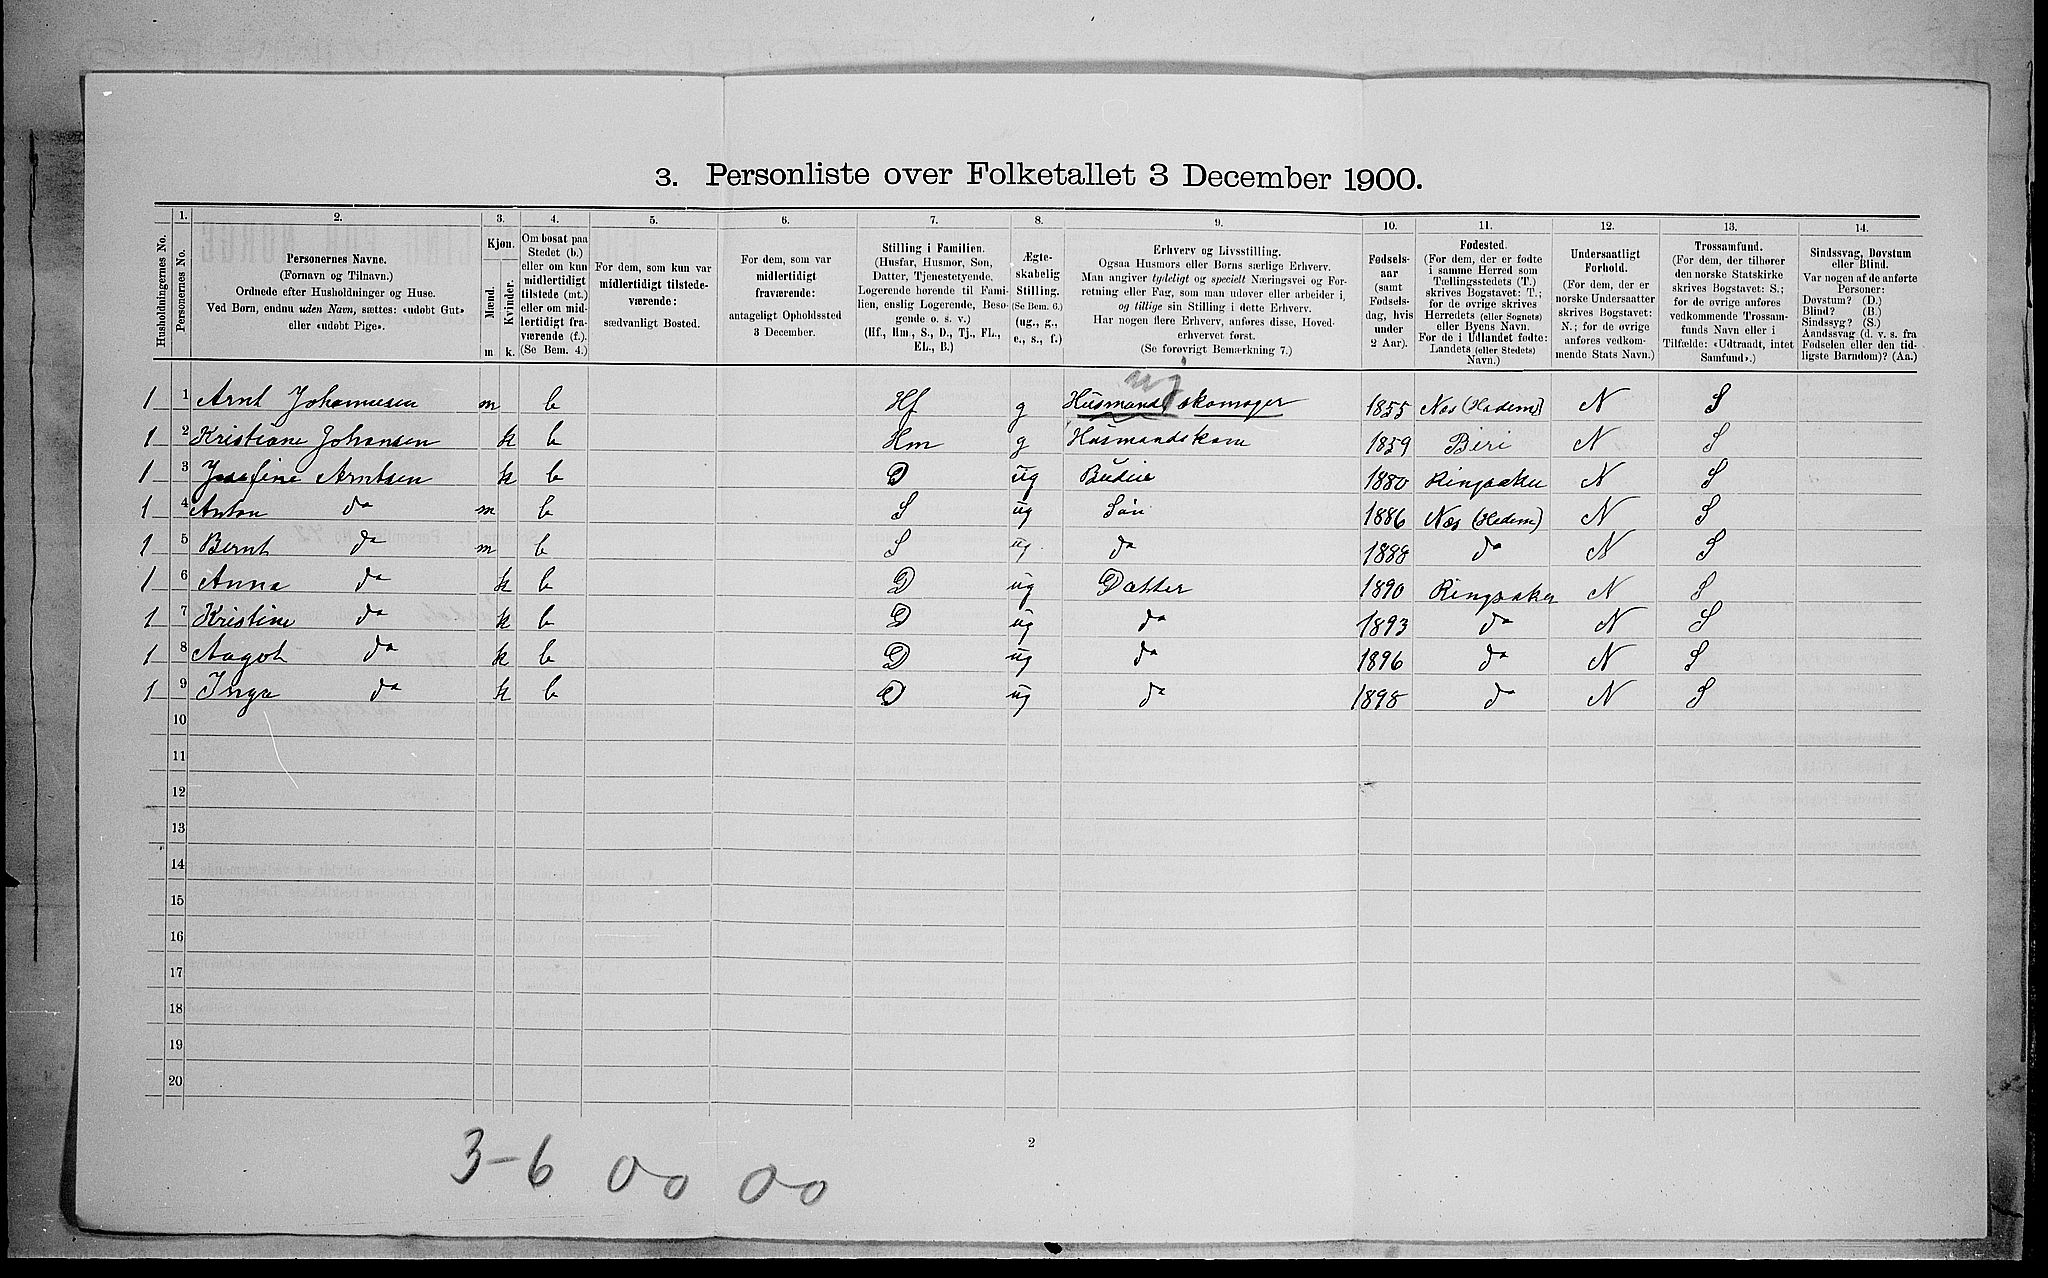 3. Personliste over Folketallet 3 December 1900.
1. 2. 3. 4. 5. 6. 7. 8. 9. 10. 11. 12. 13. 14.
Husholdningernes No.
Personernes No.
Personernes Navne.
(Fornavn og Tilnavn.)
Ordnede efter Husholdninger og Huse.
Ved Børn, endnu uden Navn, sættes: «udøbt Gut»
eller «udøbt Pige».
Kjøn.
Mænd.
Kvinder.
m k.
Om bosat paa
Stedet (b.)
eller om kun
midlertidigt
tilstede (mt.)
eller om mid-
lertidigt fra-
værende (f.).
(Se Bem. 4.)
For dem, som kun var
midlertidigt tilstede-
værende:
sædvanligt Bosted.
For dem, som var
midlertidigt
fraværende:
antageligt Opholdssted
3 December.
Stilling i Familien.
(Husfar, Husmor, Søn,
Datter, Tjenestetyende,
Logerende hørende til Fami-
lien, enslig Logerende, Besø-
gende o. s. v.)
(Hf., Hm., S., D., Tj., FL.,
EL., B.)
Ægte-
skabelig
Stilling.
(Se Bem. 6.)
(ug., g.,
e., s., f.)
Erhverv og Livsstilling.
Ogsaa Husmors eller Børns særlige Erhverv.
Man angiver tydeligt og specielt Næringsvei og For-
retning eller Fag, som man udover eller arbeider i,
og tillige sin Stilling i dette Erhverv.
Har nogen flere Erhverv, anføres disse, Hoved-
erhvervet først.
(Se forøvrigt Bemærkning 7.)
Fødsels-
aar
(samt
Fødsels-
dag, hvis
under
2 Aar).
Fødested.
(For dem, der er fødte
i samme Herred som
Tællingsstedets (T.)
skrives Bogstavet: T.;
for de øvrige skrives
Herredets (eller Sognets)
eller Byens Navn.
For de i Udlandet fødte:
Landets (eller Stedets)
Navn.)
Undersaatligt
Forhold.
(For dem, der er
norske Undersaatter
skrives Bogstavet:
N.; for de øvrige
anføres vedkom-
mende Stats Navn.)
Trossamfund.
(For dem, der tilhører
den norske Statskirke
skrives Bogstavet: S.;
for de øvrige anføres
vedkommende Trossam-
funds Navn eller i
Tilfælde: «Udtraadt, intet
Samfund».)
Sindssvag, Døvstum
eller Blind.
Var nogen af de anførte
Personer:
Døvstum? (D.)
Blind? (B.)
Sindssyg? (S.)
Aandssvag (d. v. s. fra
Fødselen eller den tid-
ligste Barndom)? (Aa.)
1 1 Arnt Johannesen m b Hf g Husmand skomager 1855 Næs (Hedem) N S
1 2 Kristiane Johansen k b Hm g Husmandskone 1859 Biri N S
1 3 Josefine Arntsen k b D ug Budeie 1880 Ringsaker N S
1 4 Anton da m b S ug Søn 1886 Næs (Hedem) N S
1 5 Bernt da m b S ug da 1888 da N S
1 6 Anna da k b D ug Datter 1890 Ringsaker N S
1 7 Kristine da k b D ug da 1893 da N S
1 8 Aagot da k b D ug da 1896 da N S
1 9 Inga da k b D ug da 1898 da N S
10
11
12
13
14
15
16
17
18
19
20
2
3-6 00 00